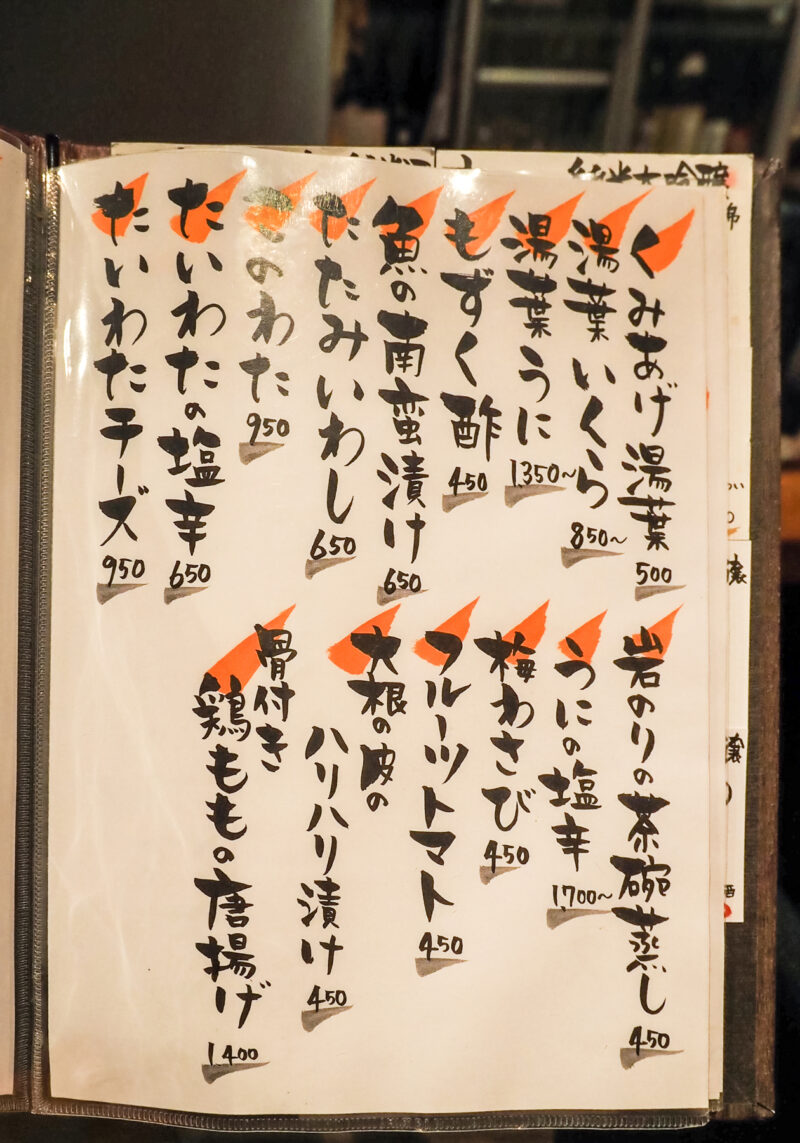 くみあげ湯葉 500
湯葉いくら 850~
湯葉うに 1,350~
もずく酢 450
魚の南蛮漬け 650
たたみいわし 650
このわた 950
たいわたの塩辛 650
たいわたチーズ 950
岩のりの茶碗蒸し 450
うにの塩辛 1,700~
梅わさび 450
フルーツトマト 450
大根の皮の
ハリハリ漬け 450
骨付き
鶏ももの唐揚げ 1400
純米大吟醸